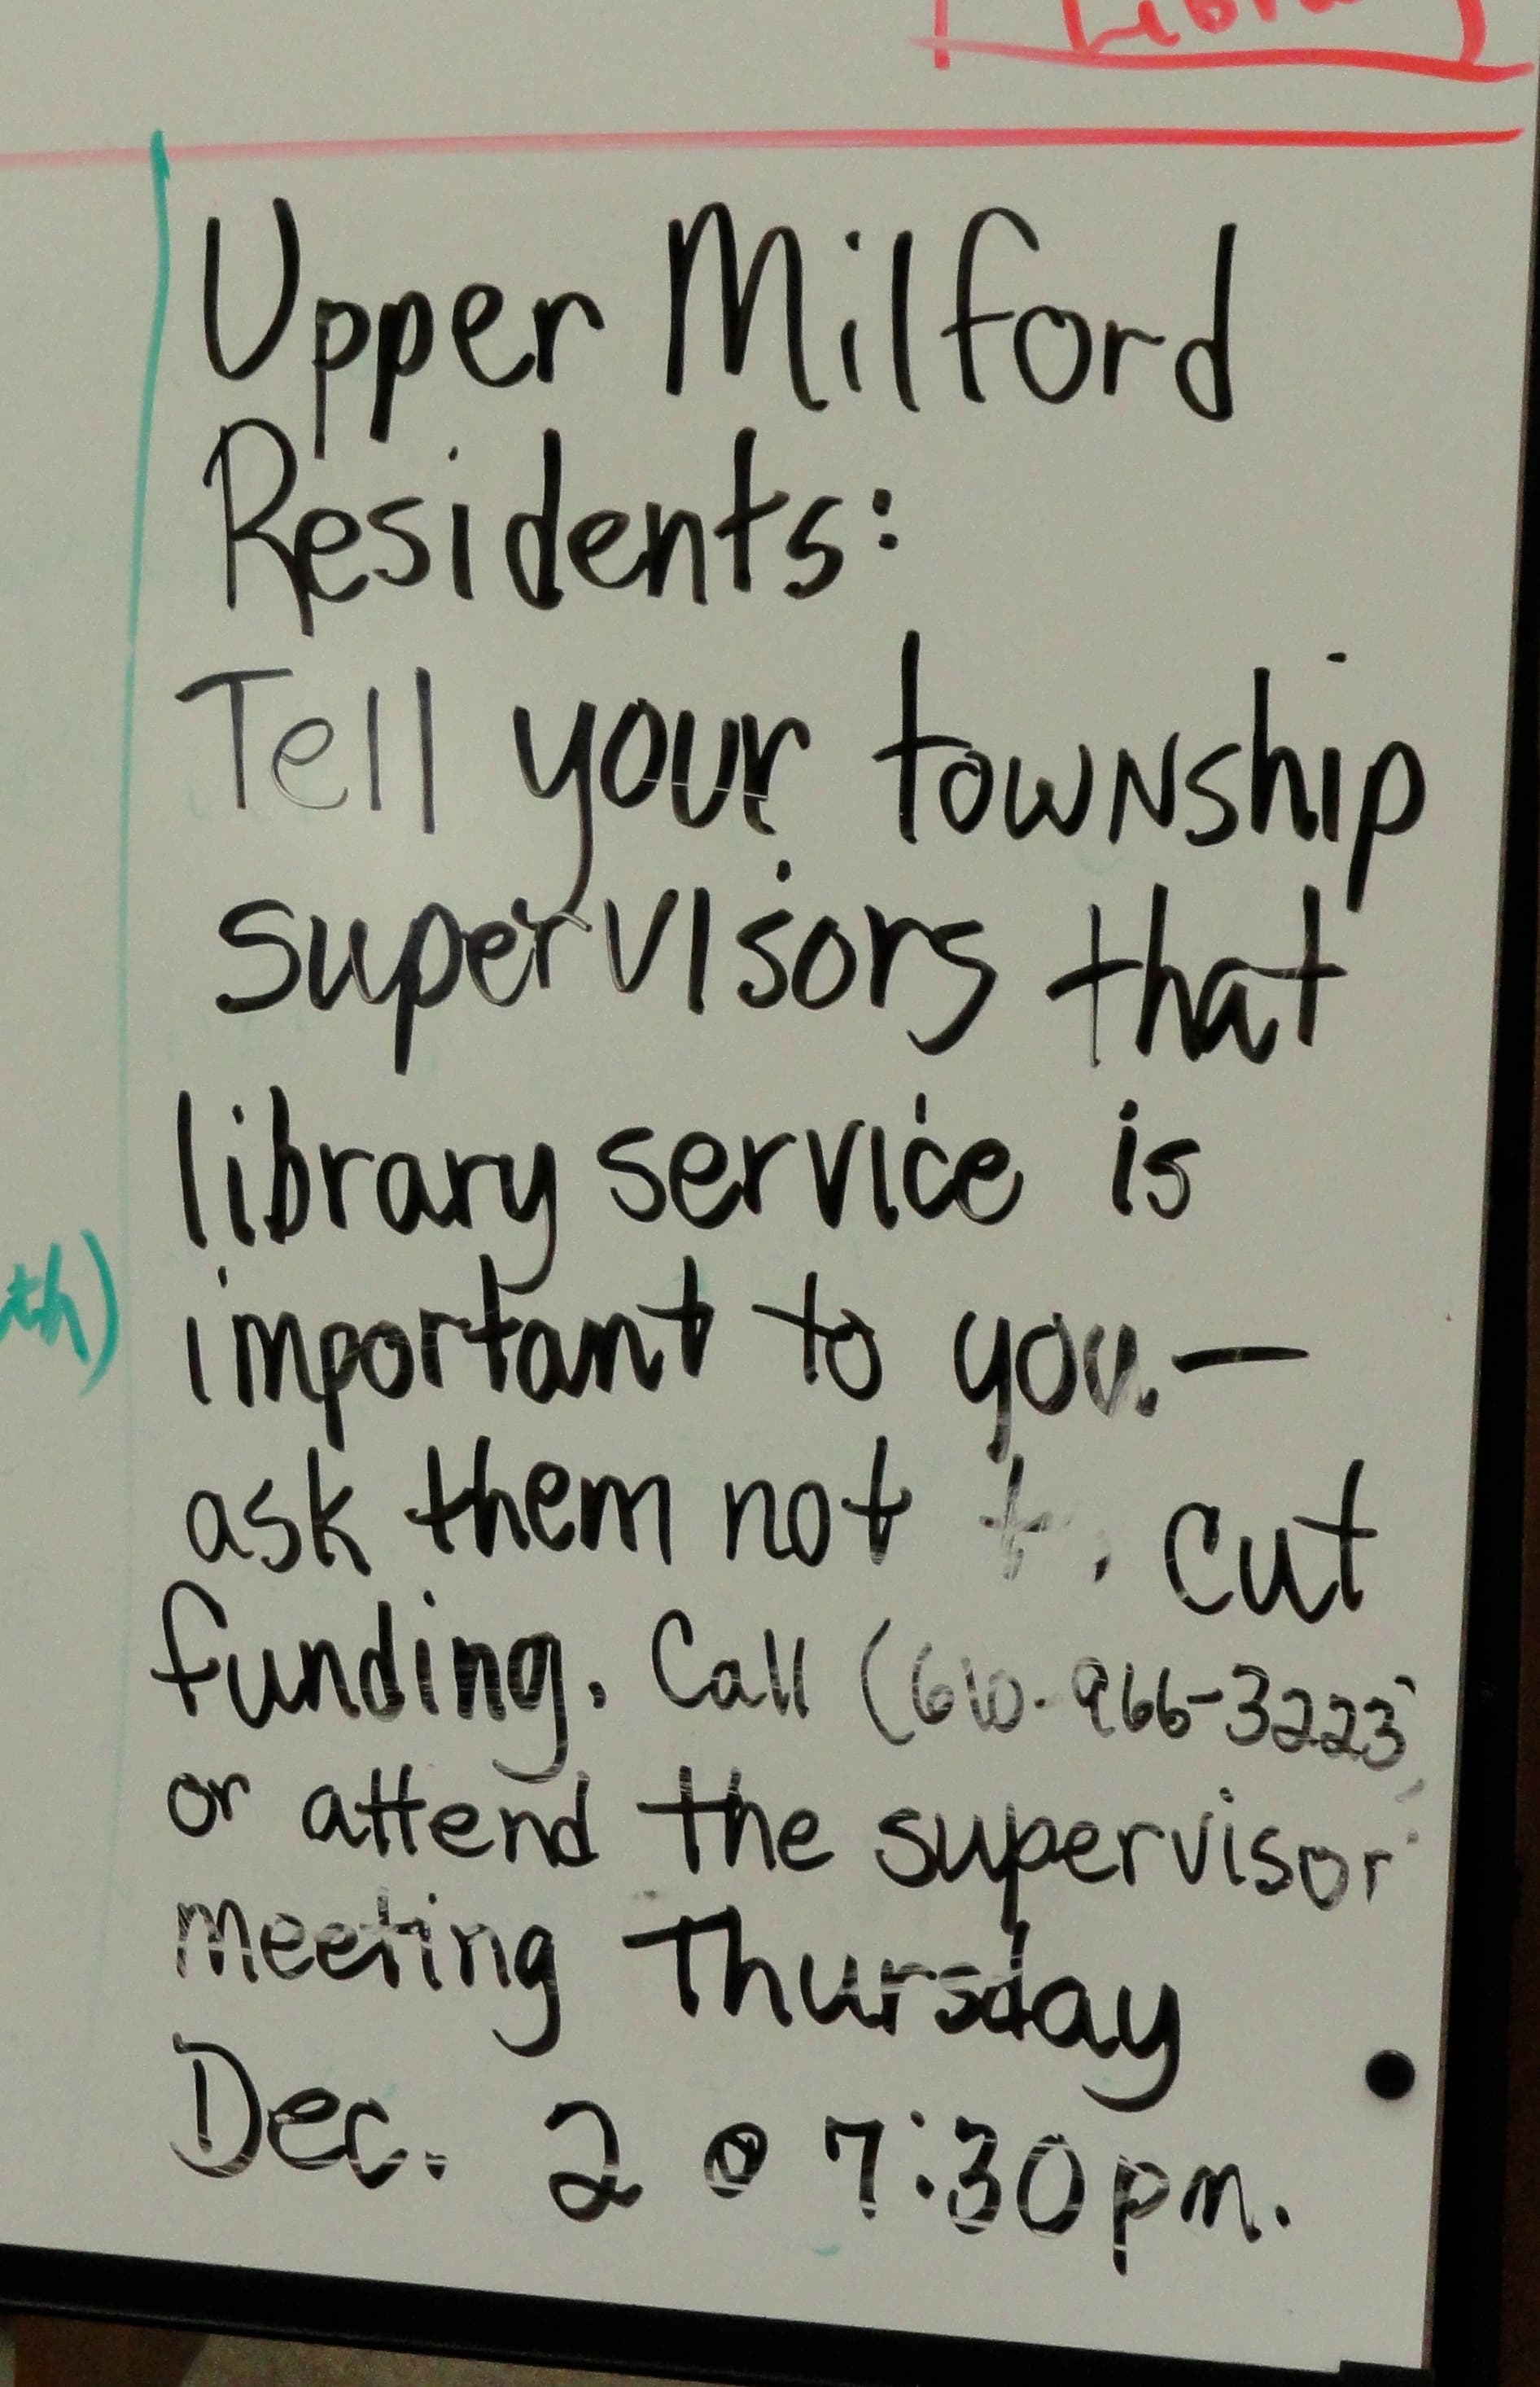 Upper Milford
Residents:
Tell your township
supervisors that
library service is
important to you.—
ask them not t. cut
funding. Call (610-966-3223)
or attend the supervisor
meeting Thursday
Dec. 2 @ 7:30pm.
th)